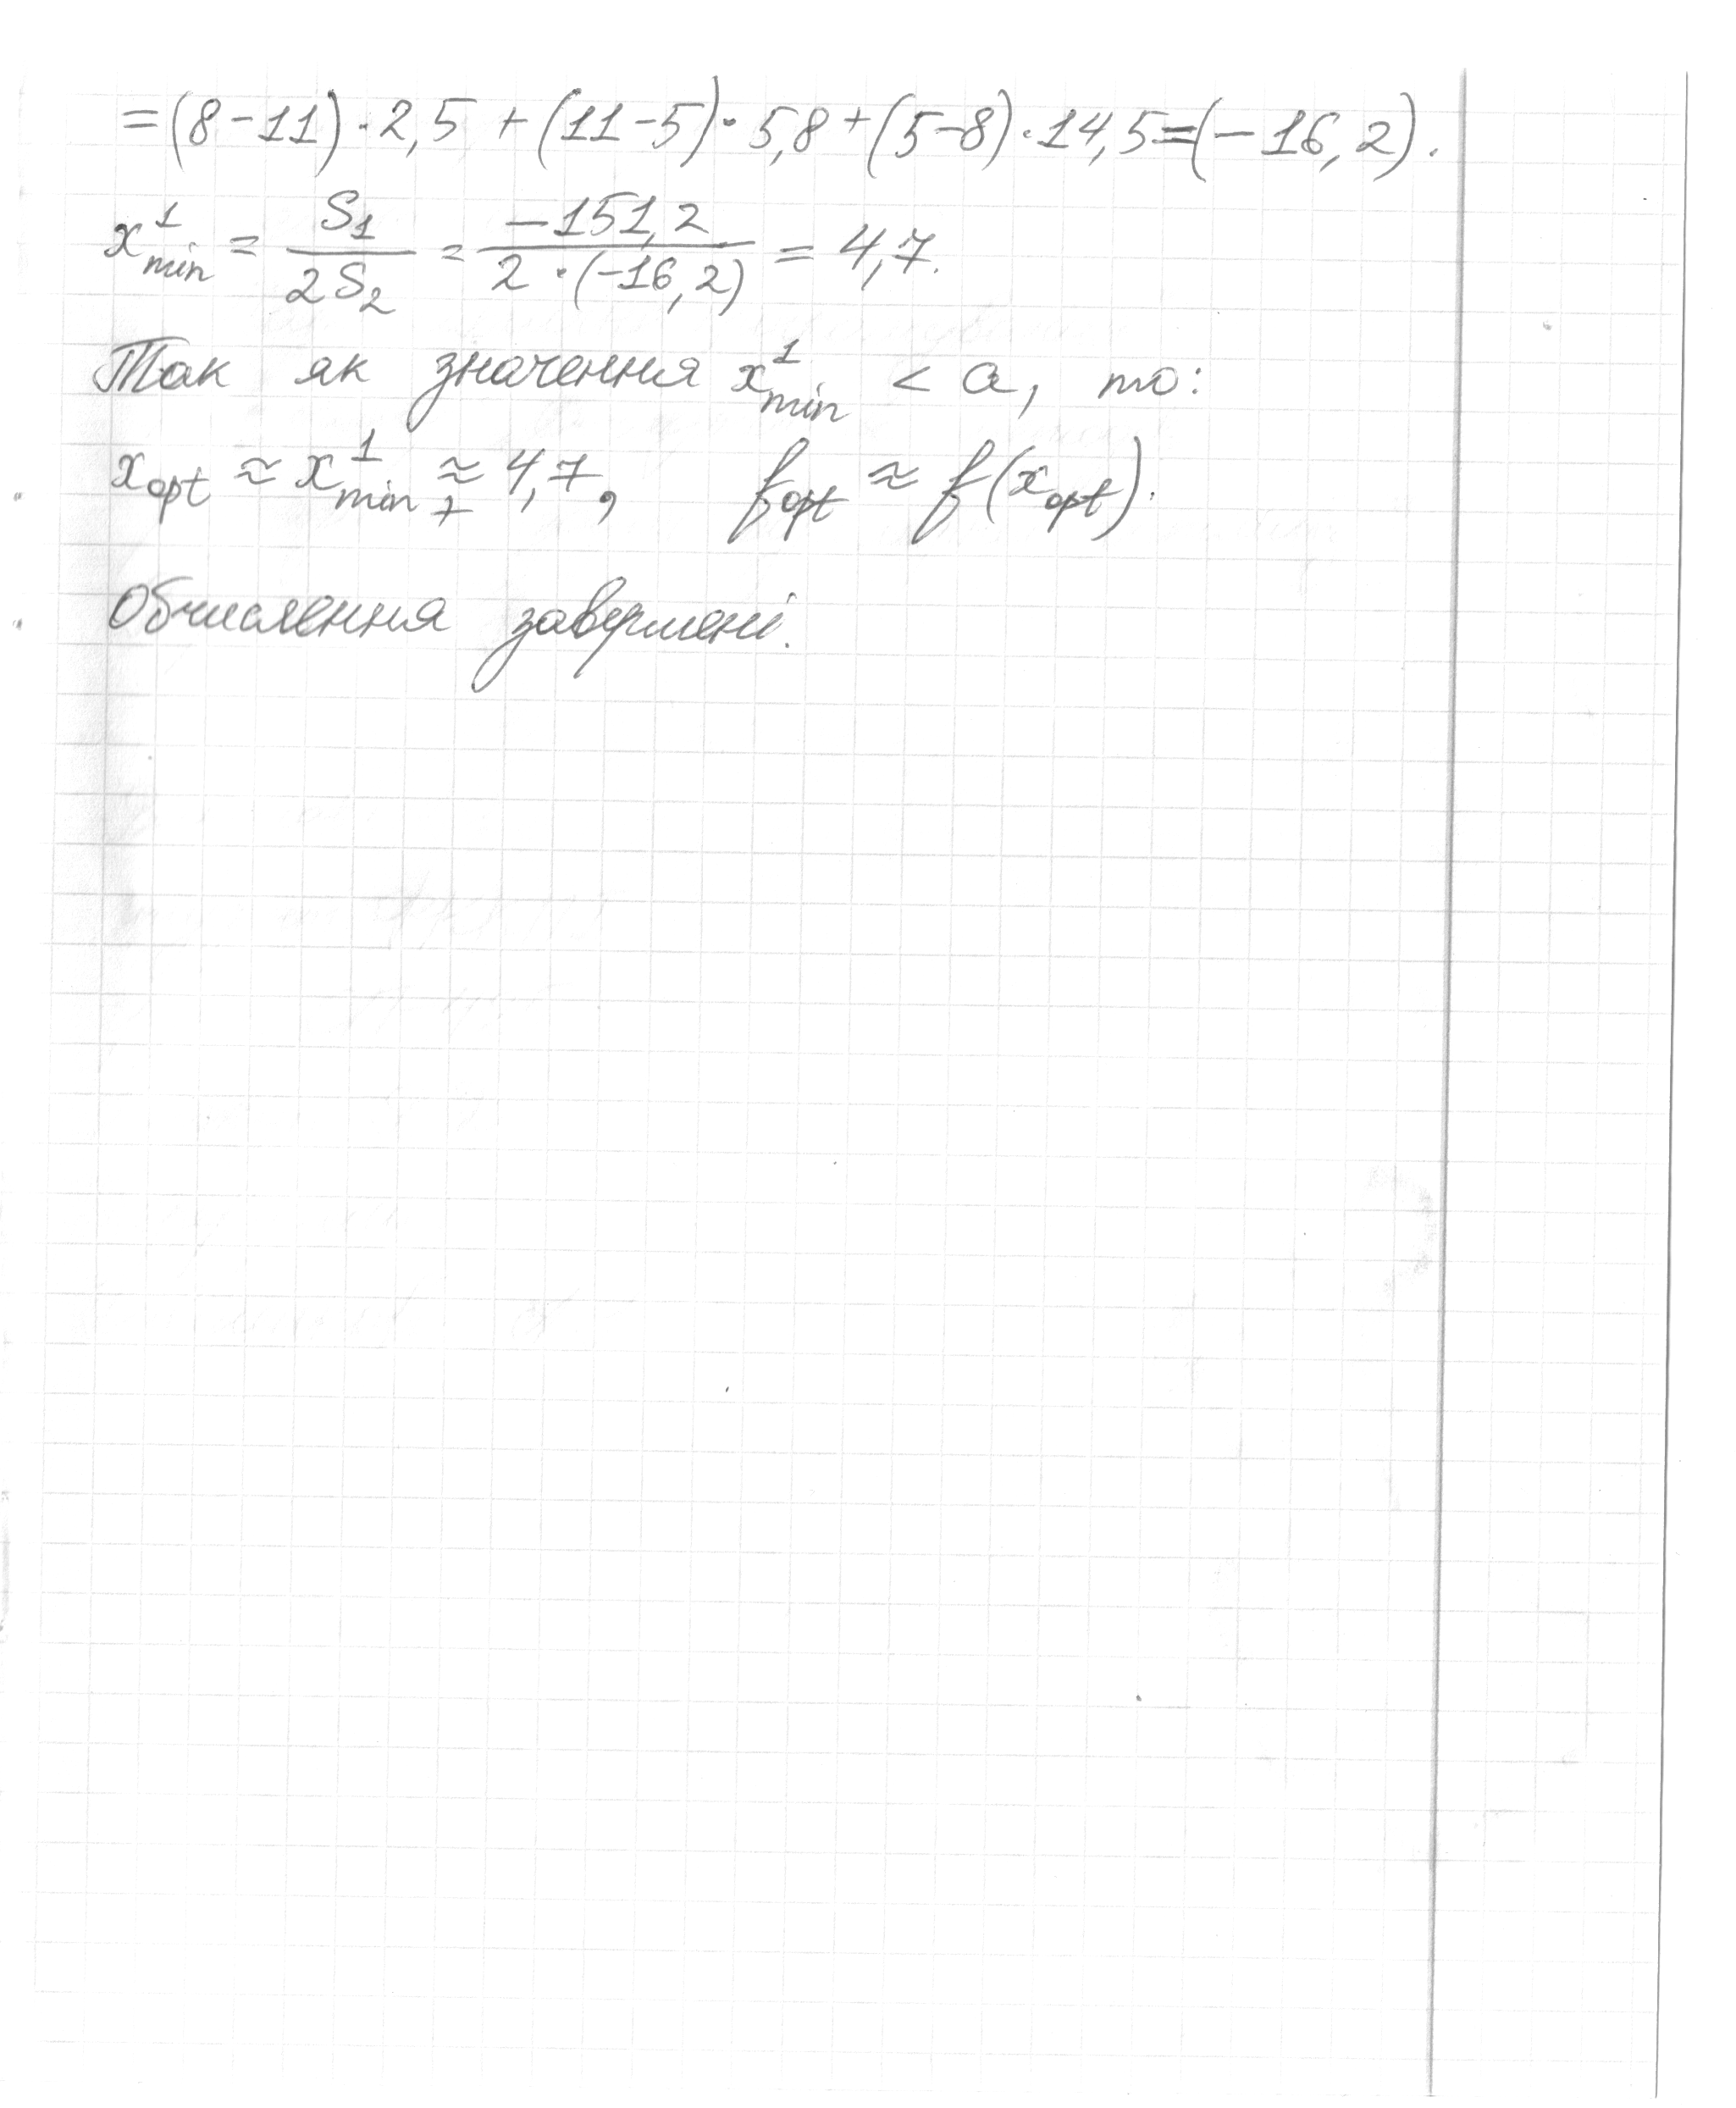 = (8 - 11) · 2,5 + (11 - 5) · 5,8 + (5 - 8) · 14,5 = (- 16,2).
x¹min = S₁ / 2S₂ = -151,2 / 2 · (-16,2) = 4,7.
Так як значення x¹min < a, то:
xopt ≈ x¹min ≈ 4,7, fopt ≈ f(xopt).
Обчислення завершені.